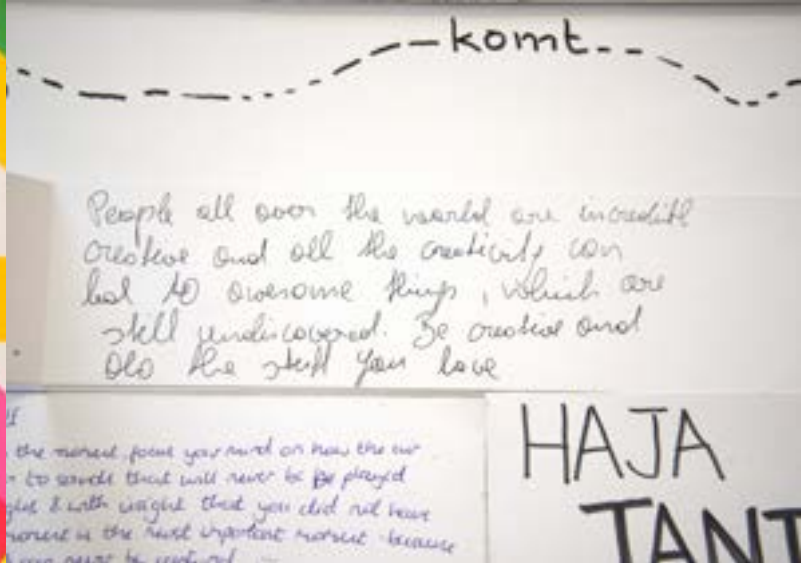 komt
People all over the world are incredible
creative and all the creativity can
lead to awesome things, which are
still undiscovered. Be creative and
Do the stuff you love
the moment, focus your mind on how the air
to sounds that will never be be played
& with weight that you did not have
moment is the most important moment because
HAJA
TANT